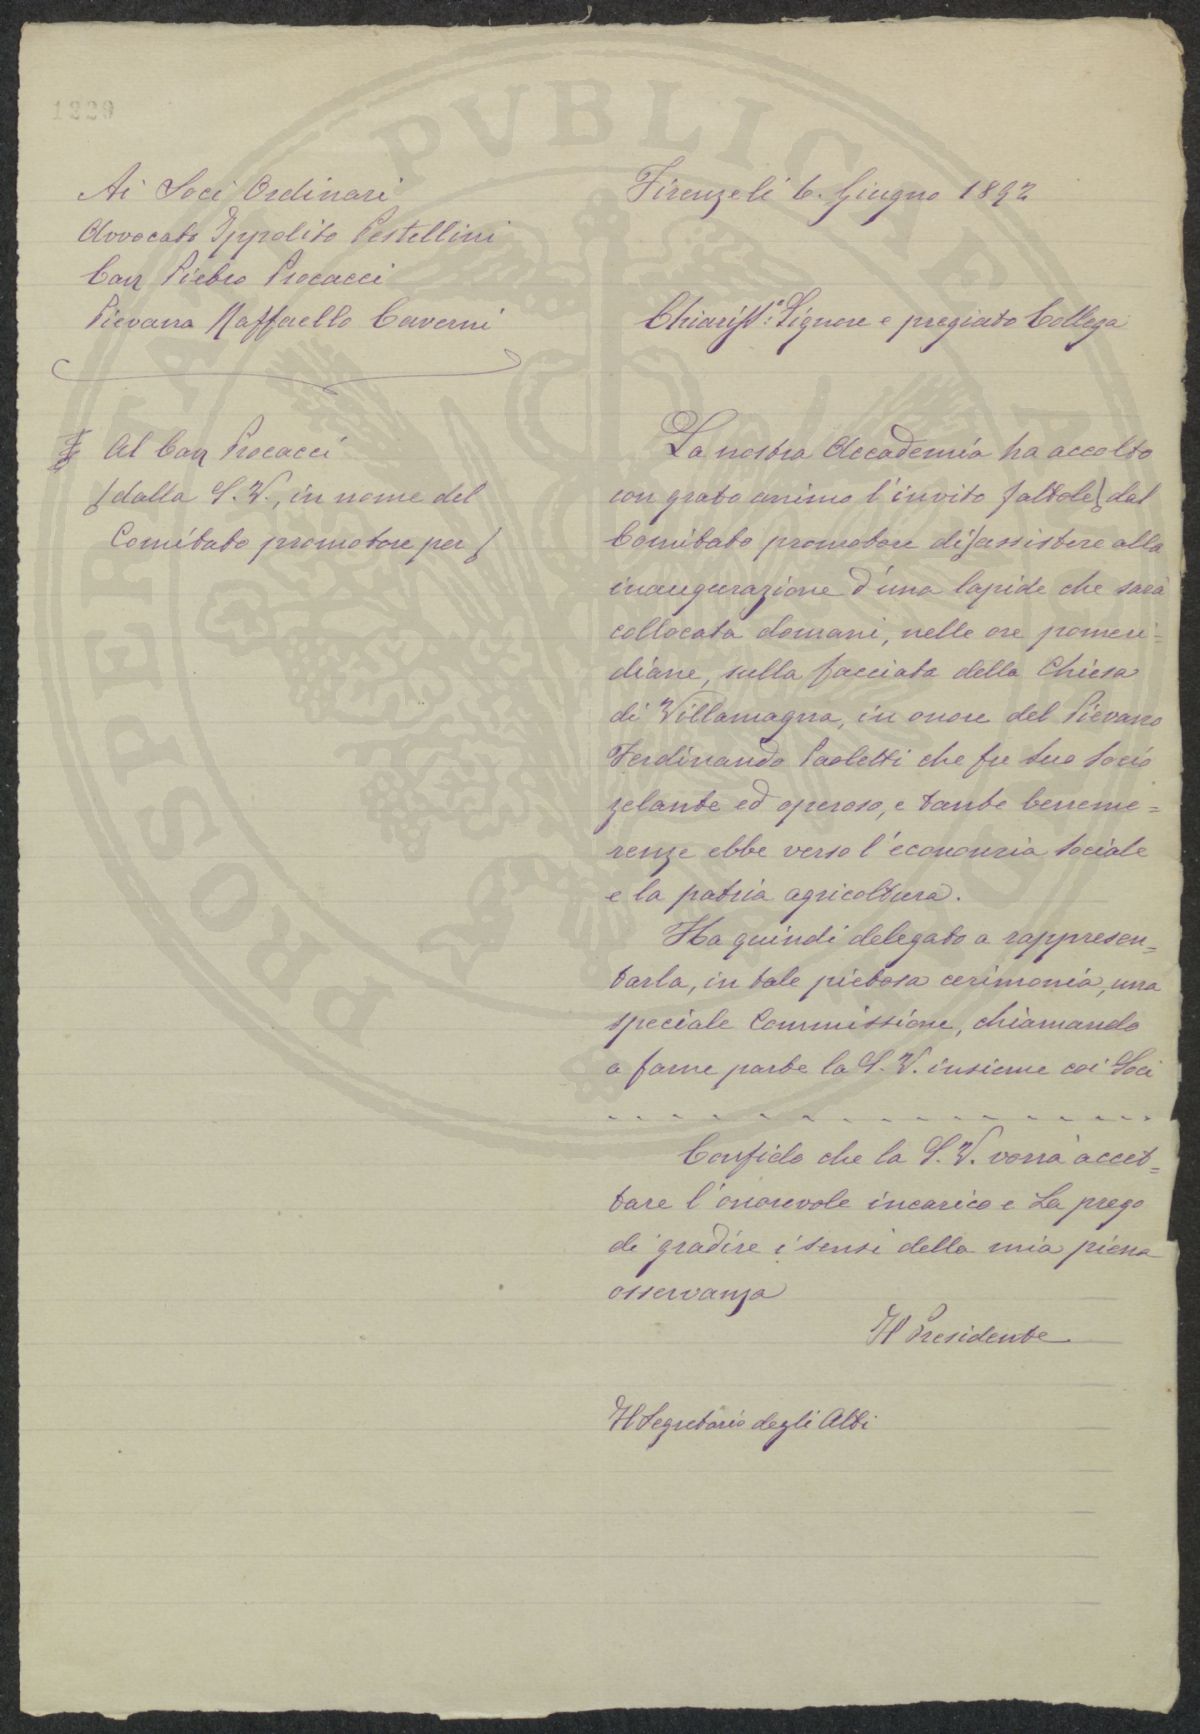 1229
Ai Soci Ordinari
Avvocato Ippolito Pestellini
Can Pietro Procacci
Pievano Raffaello Caverni
Al Can Procacci
(dalla S. V., in nome del
Comitato promotore per)
Firenze li 6. Giugno 1892
Chiariss.º: Signore e pregiato Collega
La nostra Accademia ha accolto
con grato animo l'invito fattole} dal
Comitato promotore di} assistere alla
inaugurazione d'una lapide che sarà
collocata domani, nelle ore pomeri=
diane, sulla facciata della Chiesa
di Villamagna, in onore del Pievano
Ferdinando Paoletti che fu suo socio
zelante ed operoso, e tante beneme=
renze ebbe verso l'economia sociale
e la patria agricoltura.
Ha quindi delegato a rappresen=
tarla, in tale pietosa cerimonia, una
speciale Commissione, chiamando
a farne parte la S. V. insieme coi Soci
- - - - - - - - - - - - - - - -
Confido che la S. V. vorrà accet=
tare l'onorevole incarico e La prego
di gradire i sensi della mia piena
osservanza
Il Presidente
Il Segretario degli Atti
PVBLICAE
PROSPERITATI